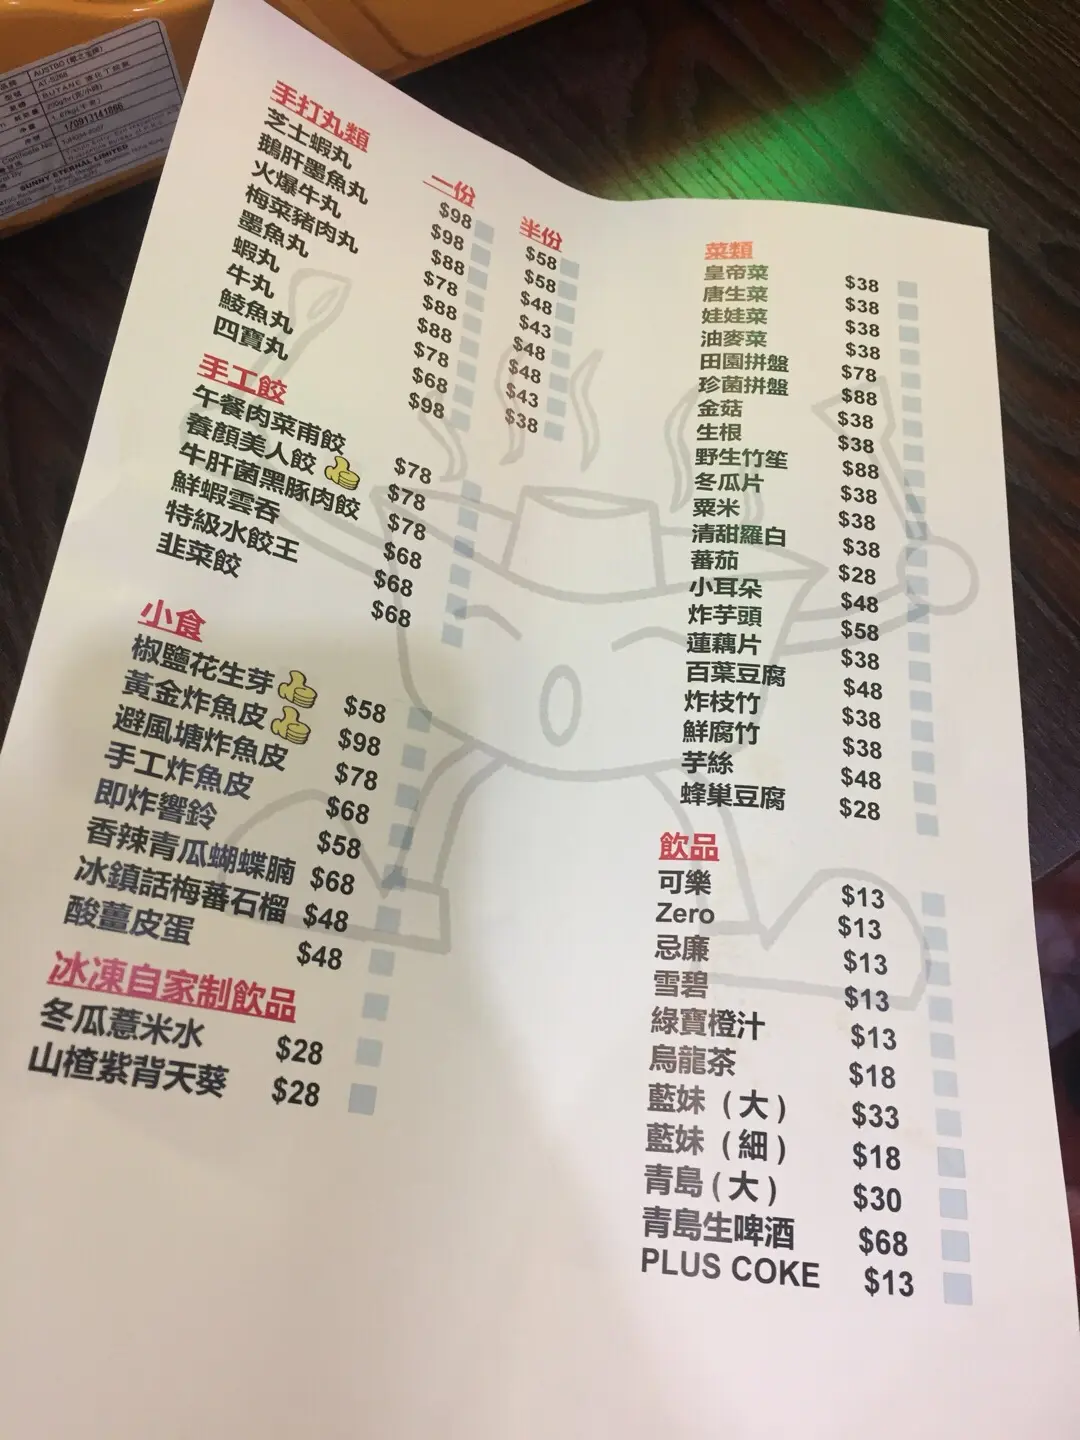 AUSTBO
AT-5268
BUTANE
170913141086
SUNNY ETERNAL LIMITED
手打丸類 一份 半份
芝士蝦丸 $98 $58
鵝肝墨魚丸 $98 $58
火爆牛丸 $88 $48
梅菜豬肉丸 $78 $43
墨魚丸 $88 $48
蝦丸 $88 $48
牛丸 $78 $43
鯪魚丸 $68 $38
四寶丸 $98
手工餃
午餐肉菜甫餃 $78
養顏美人餃 $78
牛肝菌黑豚肉餃 $78
鮮蝦雲吞 $68
特級水餃王 $68
韭菜餃 $68
小食
椒鹽花生芽 $58
黃金炸魚皮 $98
避風塘炸魚皮 $78
手工炸魚皮 $68
即炸響鈴 $58
香辣青瓜蝴蝶腩 $68
冰鎮話梅蕃石榴 $48
酸薑皮蛋 $48
冰凍自家制飲品
冬瓜薏米水 $28
山楂紫背天葵 $28
菜類
皇帝菜 $38
唐生菜 $38
娃娃菜 $38
油麥菜 $38
田園拼盤 $78
珍菌拼盤 $88
金菇 $38
生根 $38
野生竹笙 $88
冬瓜片 $38
粟米 $38
清甜羅白 $38
蕃茄 $28
小耳朵 $48
炸芋頭 $58
蓮藕片 $38
百葉豆腐 $48
炸枝竹 $38
鮮腐竹 $38
芋絲 $48
蜂巢豆腐 $28
飲品
可樂 $13
Zero $13
忌廉 $13
雪碧 $13
綠寶橙汁 $13
烏龍茶 $18
藍妹（大） $33
藍妹（細） $18
青島(大) $30
青島生啤酒 $68
PLUS COKE $13